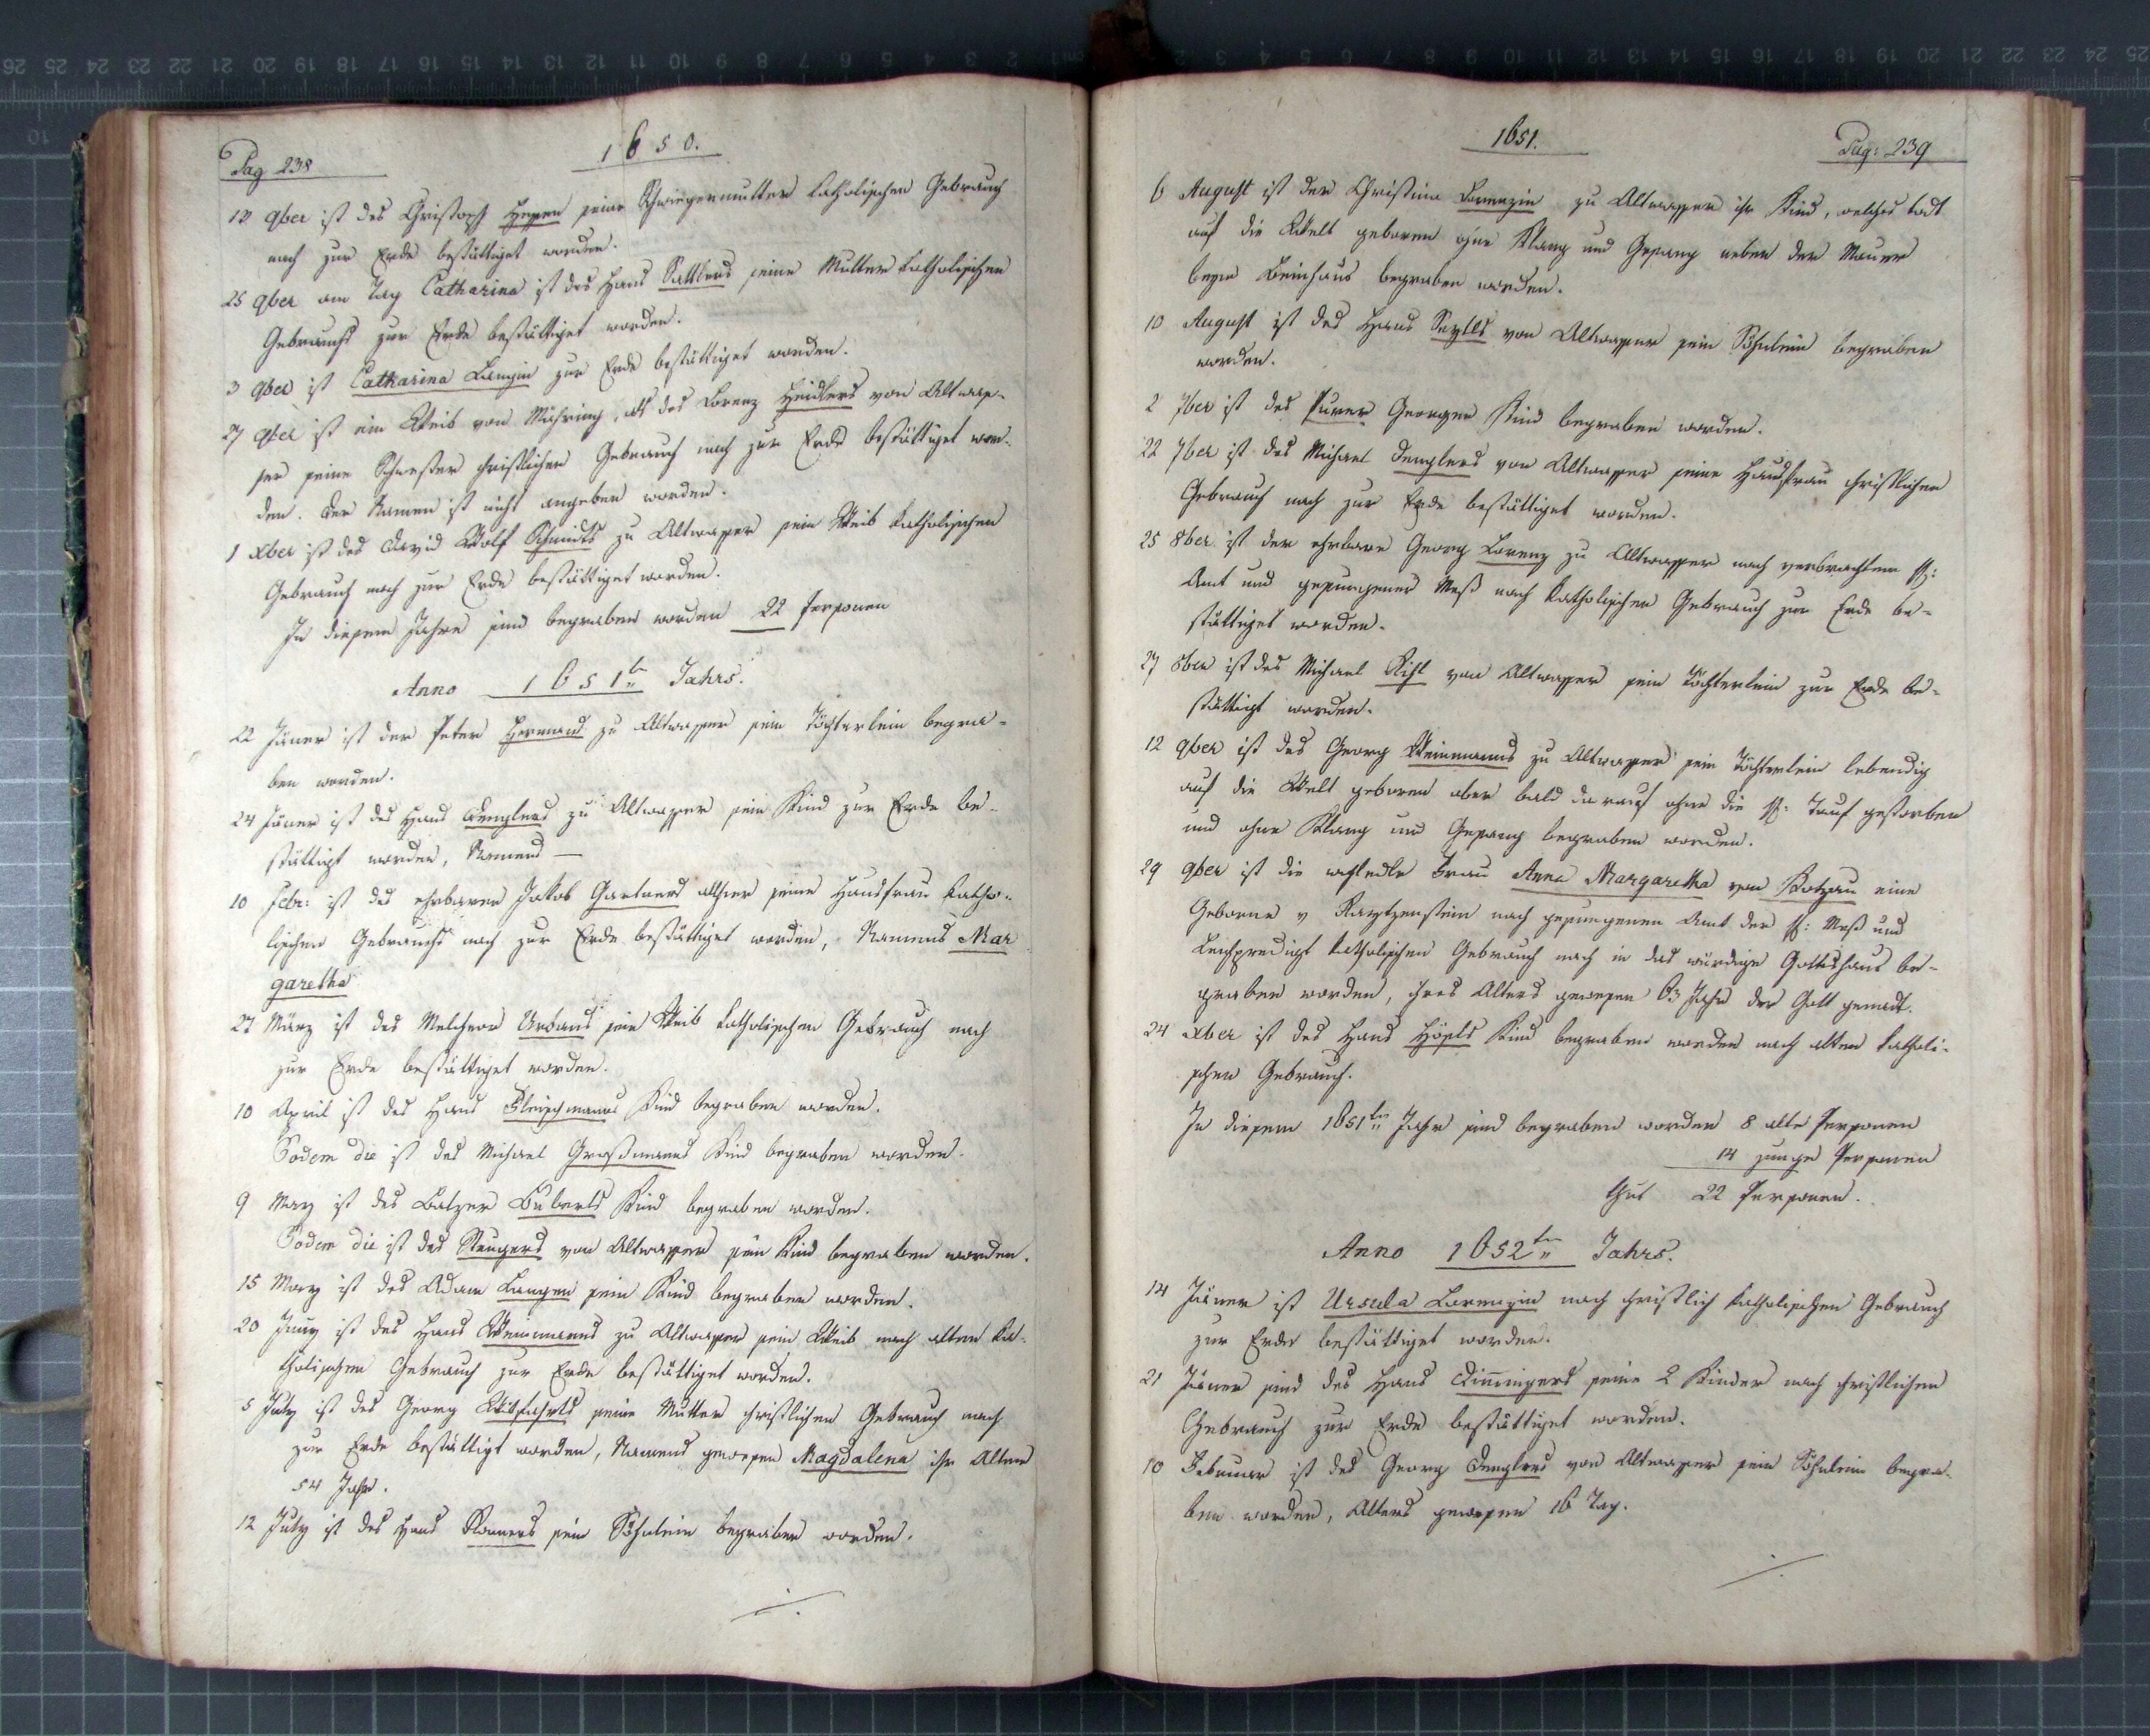 Pag 238
1650.
12 9ber ist des Christoph Heyen seine Schwiegermutter katholischen Gebrauch
nach zur Erde bestättiget worden.
25 9ber am Tag Catharina ist des Hans Sattlers seine Mutter katholischen
Gebrauchs zur Erde bestättiget worden.
3 9ber ist Catharina Langin zur Erde bestättiget worden.
27 9ber ist ein Weib von Mähring, als des Lorenz Heidlers von Altwas-
ser seine Schwester christlichen Gebrauch nach zur Erde bestättiget wor-
den. Der Namen ist nicht angeben worden.
1 xber ist des David Wolf Schmidts zu Altwasser sein Weib katholischen
Gebrauch nach zur Erde bestättiget worden.
In diesem Jahre sind begraben worden 22 Personen
Anno 1651tn Jahrs.
22 Jäner ist der Peter Hermans zu Altwasser sein Töchterlein begra-
ben worden.
24 Jäner ist des Hans Denglers zu Altwasser sein Kind zur Erde be-
stättigt worden, Namens —
10 Febr: ist des ehrbaren Jakob Gartners allhier seine Hausfrau katho-
lischen Gebrauchs nach zur Erde bestättiget worden, Namens Mar
garetha
27 März ist des Melcheor Urbans sein Weib katholischen Gebrauch nach
zur Erde bestättiget worden.
10 April ist des Hans Fleischmanns Kind begraben worden.
Eodem die ist des Michael Großmanns Kind begraben worden.
9 May ist des Balzer Huberts Kind begraben worden.
Eodem die ist des Stengers von Altwasser sein Kind begraben worden.
15 May ist des Adam Langen sein Kind begraben worden.
20 Juny ist des Hans Weinmanns zu Altwasser sein Weib nach alten ka-
tholischen Gebrauch zur Erde bestättiget worden.
5 July ist des Georg seine Mutter christlichen Gebrauch nach
zur Erde bestättigt worden, Namens gewesen Magdalena ihr Alter
54 Jahr.
12 July ist des Hans sein Söhnlein begraben worden.
1651.
Pag: 239
6 August ist der Christina Lorenzin zu Altwasser ihr Kind, welches todt
auf die Welt geboren ohne Klang und Gesang neben der Mauer
beym Beinhaus begraben worden.
10 August ist des Hans Seytls von Altwasser sein Söhnlein begraben
worden.
2 7ber ist des Purer Georgen Kind begraben worden.
22 7ber ist des Michael Denglers von Altwasser seine Hausfrau christlichen
Gebrauch nach zur Erde bestättiget worden.
25 8ber ist der ehrbare Georg Lorenz zu Altwasser nach verbrachtem hl:
Amt und gesungener Meß nach katholischen Gebrauch zur Erde be-
stättiget worden.
27 8ber ist des Michael von Altwasser sein Töchterlein zur Erde be-
stättigt worden.
12 9ber ist des Georg Weinmanns zu Altwasser sein Töchterlein lebendig
auf die Welt geboren aber bald darauf ohne die hl: Tauf gestorben
und ohne Klang und Gesang begraben worden.
29 9ber ist die Frau Anna Margaretha von Kotzau eine
Geborne v Raytzenstein nach gesungenen Amt der hl: Meß und
Leichpredigt katholischen Gebrauch nach in das würdige Gotteshaus be-
graben worden, ihres Alters gewesen 63 Jahr der Gott genadt.
24 xber ist des Hans Höpls Kind begraben worden nach alten katholi-
schen Gebrauch.
In diesem 1651tn Jahr sind begraben worden 8 alte Personen
14 junge Personen
thut 22 Personen.
Anno 1652tn Jahrs.
14 Jäner ist Ursula Lorenzin nach christlich katholischen Gebrauch
zur Erde bestättiget worden.
21 Jäner sind des Hans seine 2 Kinder nach christlichen
Gebrauch zur Erde bestättiget worden.
10 Februar ist des Georg Denglers von Altwasser sein Söhnlein begra-
ben worden, Alters gewesen 16 Tag.